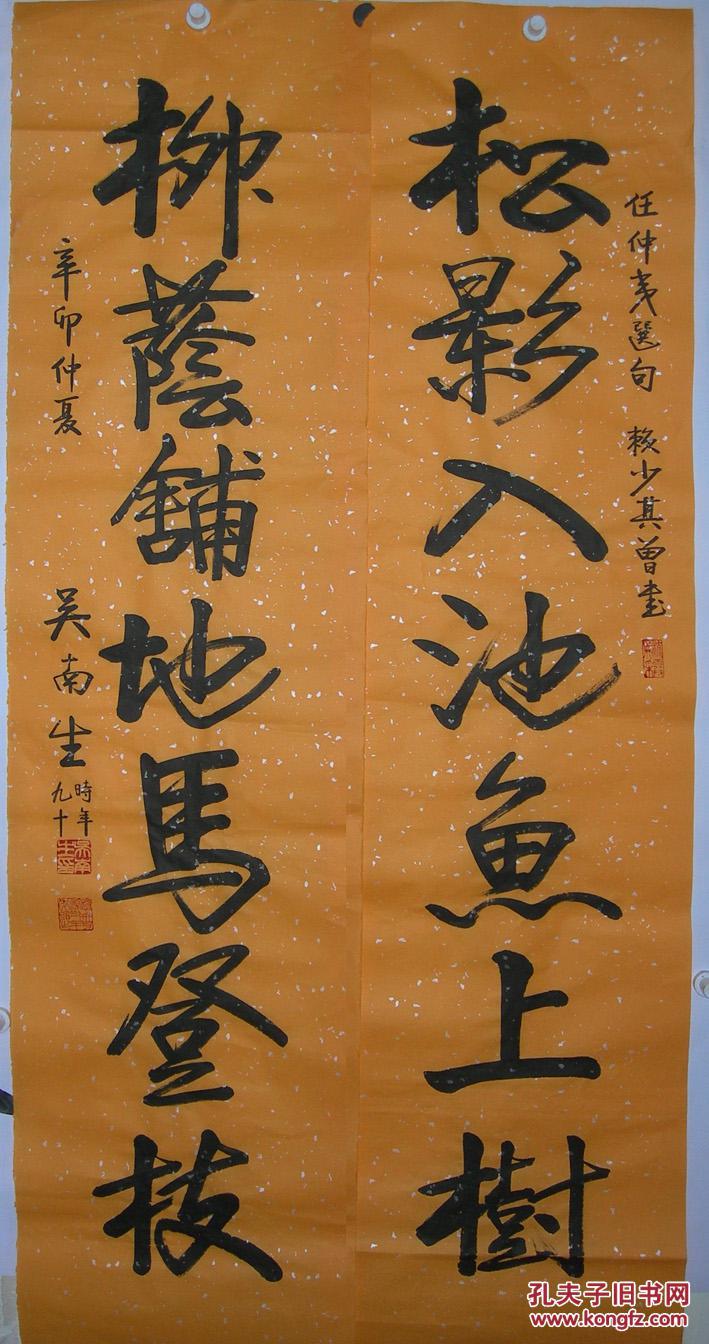 任仲夷選句 賴少其曾書
松影入池魚上樹
柳蔭舖地馬登枝
辛卯仲夏
吴南生
時年
九十
孔夫子旧书网
www.kongfz.com